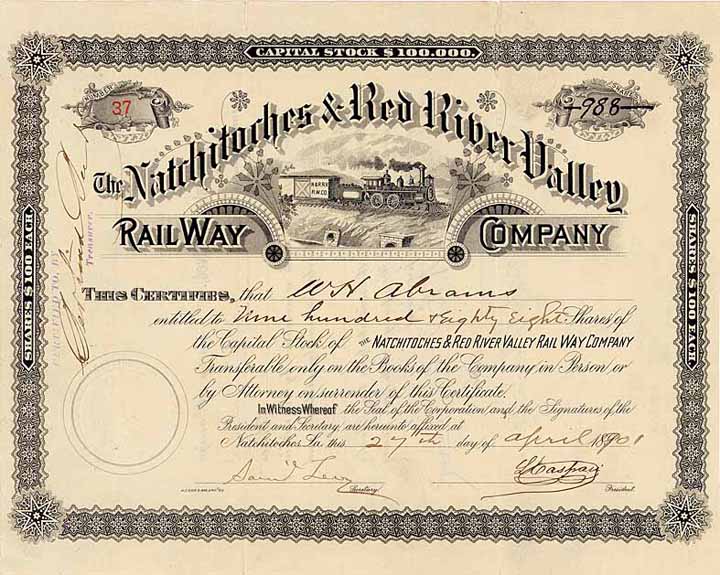 CAPITAL STOCK $100.000.
NUMBER
37
SHARES
988
The Natchitoches & Red River Valley
N & R R V
R. W. CO.
RAIL WAY COMPANY
SHARES $100 EACH
SHARES $100 EACH
Treasurer.
THIS CERTIFIES, that W H. Abrams
entitled to Nine hundred & Eighty Eight Shares of
the Capital Stock of THE NATCHITOCHES & RED RIVER VALLEY RAIL WAY COMPANY
Transferable only on the Books of the Company in Person or
by Attorney on surrender of this Certificate.
In Witness Whereof the Seal of the Corporation and the Signatures of the
President and Secretary are hereunto affixed at
Natchitoches, La. this 27th day of april 1901
Sam'l Levy
Secretary
Caspari
President.